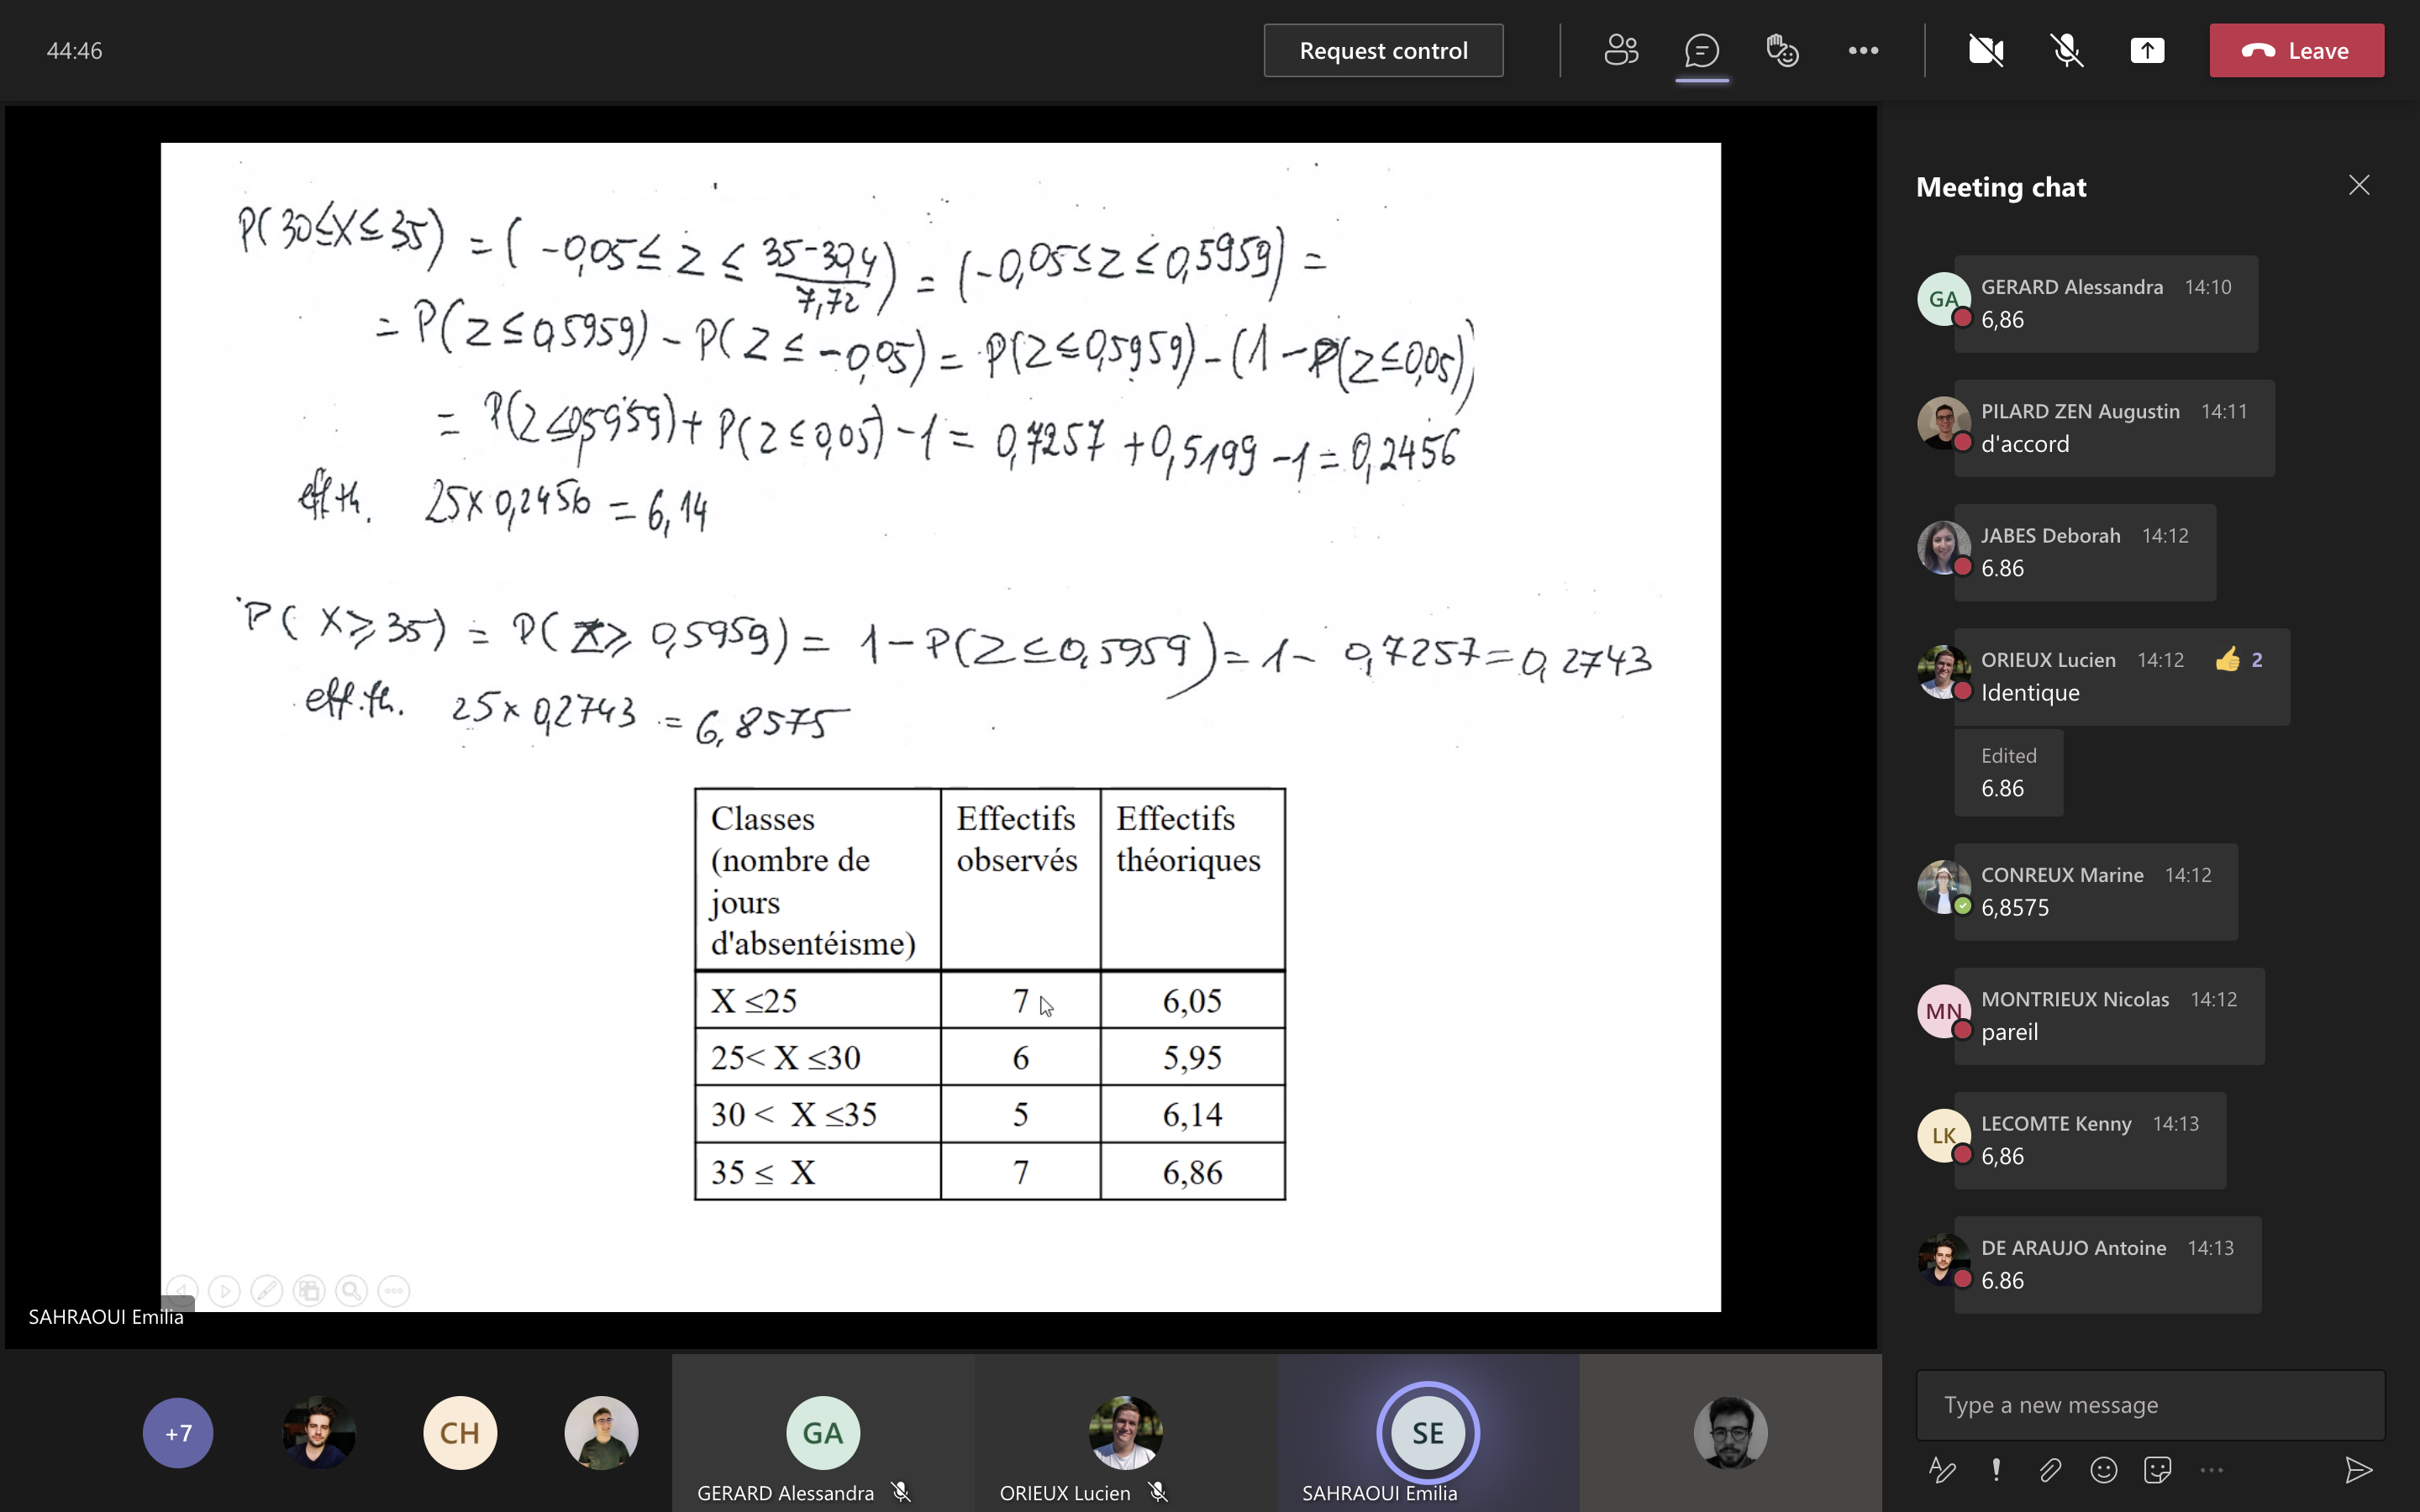 44:46
Request control
Leave
P(30≤X≤35) = (-0,05≤ z ≤ (35-30,4)/7,72) = (-0,05≤z≤0,5959) =
= P(z≤0,5959) - P(z ≤ -0,05) = P(z≤0,5959) - (1 - P(z≤0,05))
= P(z≤0,5959) + P(z≤0,05) -1 = 0,7257 + 0,5199 -1 = 0,2456
eff th. 25x0,2456 = 6,14
P( X⩾35) = P( Z⩾ 0,5959) = 1 - P(Z≤0,5959) = 1 - 0,7257 = 0,2743
eff.th. 25x 0,2743 = 6,8575
Classes
(nombre de
jours
d'absentéisme)
Effectifs
observés
Effectifs
théoriques
X ≤25 7 6,05
25< X ≤30 6 5,95
30 < X ≤35 5 6,14
35 ≤ X 7 6,86
SAHRAOUI Emilia
+7
CH
GA
GERARD Alessandra
ORIEUX Lucien
SE
SAHRAOUI Emilia
Meeting chat
GA
GERARD Alessandra 14:10
6,86
PILARD ZEN Augustin 14:11
d'accord
JABES Deborah 14:12
6.86
ORIEUX Lucien 14:12 2
Identique
Edited
6.86
CONREUX Marine 14:12
6,8575
MN
MONTRIEUX Nicolas 14:12
pareil
LK
LECOMTE Kenny 14:13
6,86
DE ARAUJO Antoine 14:13
6.86
Type a new message